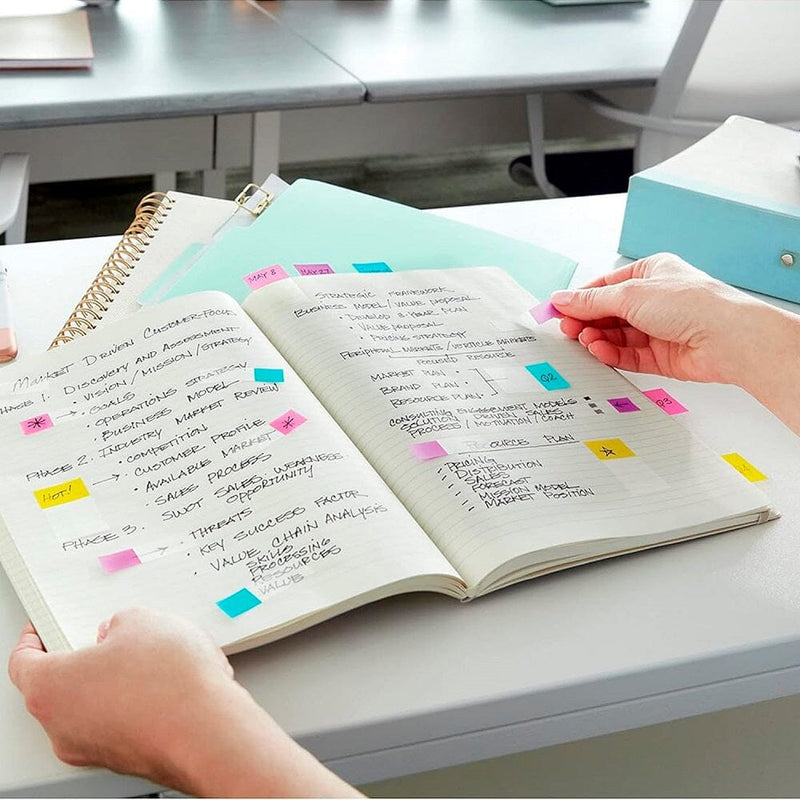 MARKET DRIVEN CUSTOMER-FOCUS
PHASE 1. DISCOVERY AND ASSESSMENT
• VISION / MISSION / STRATEGY
* → • GOALS
OPERATIONS STRATEGY
BUSINESS MODEL
PHASE 2. INDUSTRY MARKET REVIEW
• COMPETITION
HOT! → • CUSTOMER PROFILE *
• AVAILABLE MARKET
SALES PROCESS
SWOT SALES, WEAKNESS
OPPORTUNITY
PHASE 3. THREATS
• KEY SUCCESS FACTOR
• VALUE CHAIN ANALYSIS
SKILLS
PROCESSING
RESOURCES
VALUE
MAY 8
MAY 27
STRATEGIC FRAMEWORK
BUSINESS MODEL / VALUE PROPOSAL
• DEVELOP 3-YEAR PLAN
• VALUE PROPOSAL
• PRICING STRATEGY
PERIPHERAL MARKETS / VERTICLE MARKETS
FOCUSED RESOURCE
MARKET PLAN •
BRAND PLAN • Q2
RESOURCE PLAN •
Q3
CONSULTING ENGAGEMENT MODELS
SOLUTION DRIVEN SALES
PROCESS / MOTIVATION / COACH
RESOURCE PLAN
• PRICING
• DISTRIBUTION
• SALES
FORECAST
• MISSION MODEL
• MARKET POSITION